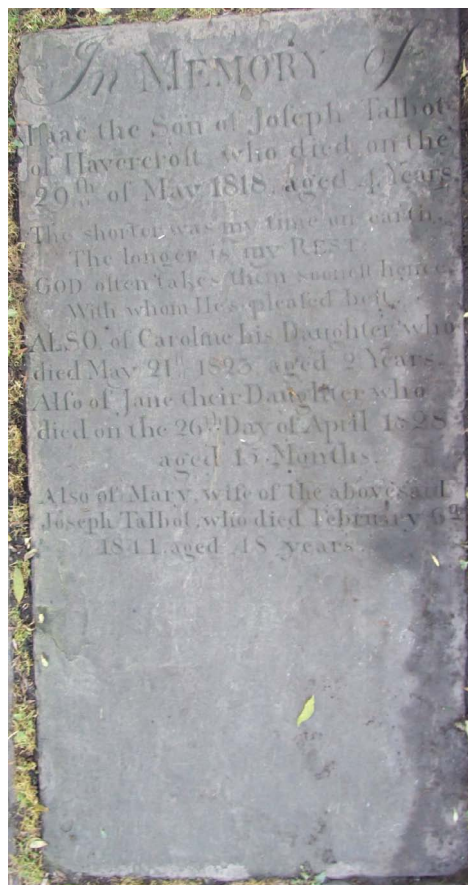 In MEMORY of
Isaac the Son of Joſeph Talbot
of Havercroft who died on the
20th of May 1818, aged 4 Years.
The shorter was my time on earth,
The longer is my REST.
GOD often takes them sooneſt hence,
With whom He's pleaſed beſt.
ALSO, of Caroline his Daughter who
died May 21st 1823 aged 2 Years.
Alſo of Jane their Daughter who
died on the 26th Day of April 1828
aged 15 Months.
Also of Mary, wife of the abovesaid
Joseph Talbot, who died February 6th
1841, aged 48 years.